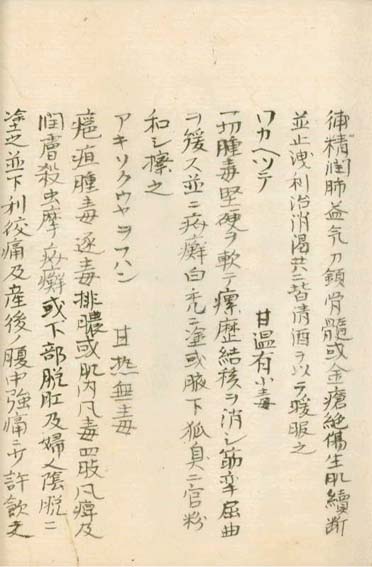 精潤肺益気刀鎖骨髄或金瘡絶傷生肌續断
並止洩利治消渇共ニ皆清酒ヲ以テ暖服之
甘温有小毒
一切腫毒堅硬ヲ軟テ瘰歴結核ヲ消シ筋牽屈曲
ヲ緩ス並ニ癬白禿ニ塗或腋下狐臭ニ官粉
和シ擦之
甘熱無毒
瘡疽腫毒逐毒排膿或肌肉風毒四肢風痺及
潤膚殺虫摩癬或下部脱肛及婦人陰脱ニ
塗之並下利絞痛及産後ノ腹中強痛ニ少許飲